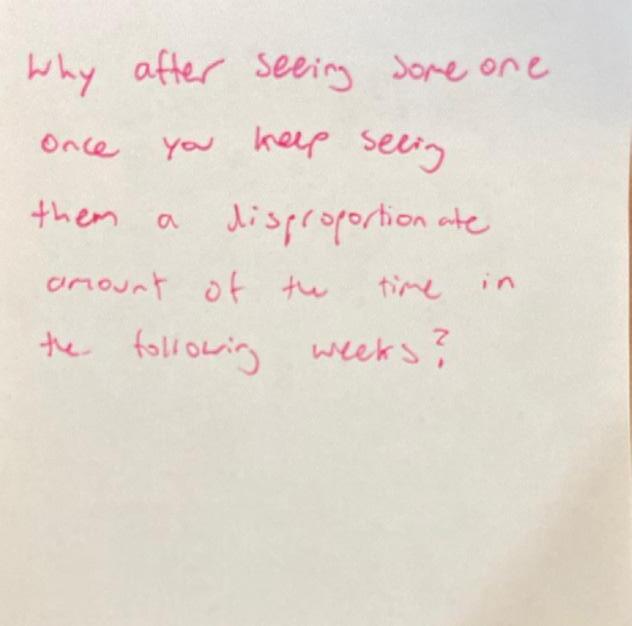 Why after seeing someone
once you keep seeing
them a disproportionate
amount of the time in
the following weeks?